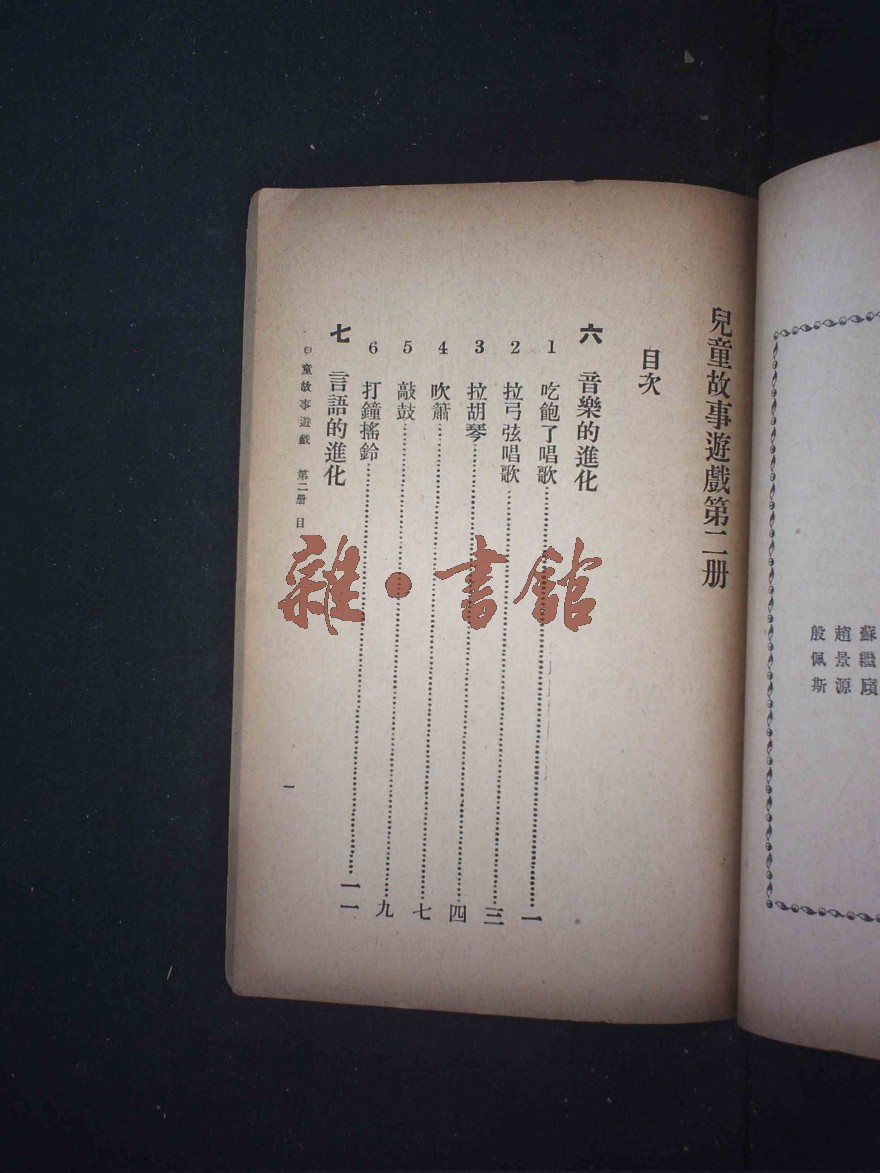 蘇繼廎
趙景源
殷佩斯
兒童故事遊戲第二册
目次
六 音樂的進化
1 吃飽了唱歌 一
2 拉弓弦唱歌 三
3 拉胡琴 四
4 吹簫 七
5 敲鼓 九
6 打鐘搖鈴 一一
七 言語的進化
兒童故事遊戲 第二册 目
一
雜·書館